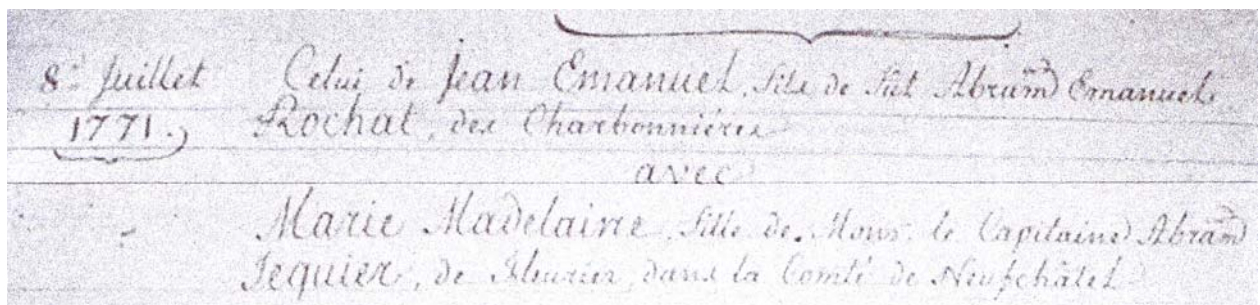 8.e Juillet Celui de Jean Emanuel, fils de fût Abram Emanuel
1771. Rochat, des Charbonniéres
avec
Marie Madelaine, fille de Mons.r le Capitaine Abram
Jequier, de Fleurier, dans la Comté de Neufchâtel